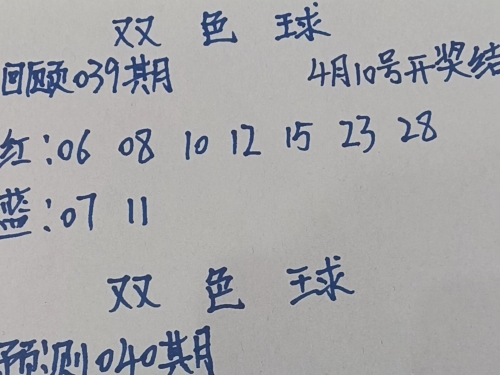 双色球
回顾039期 4月10号开奖结
红:06 08 10 12 15 23 28
蓝:07 11
双色球
预测040期